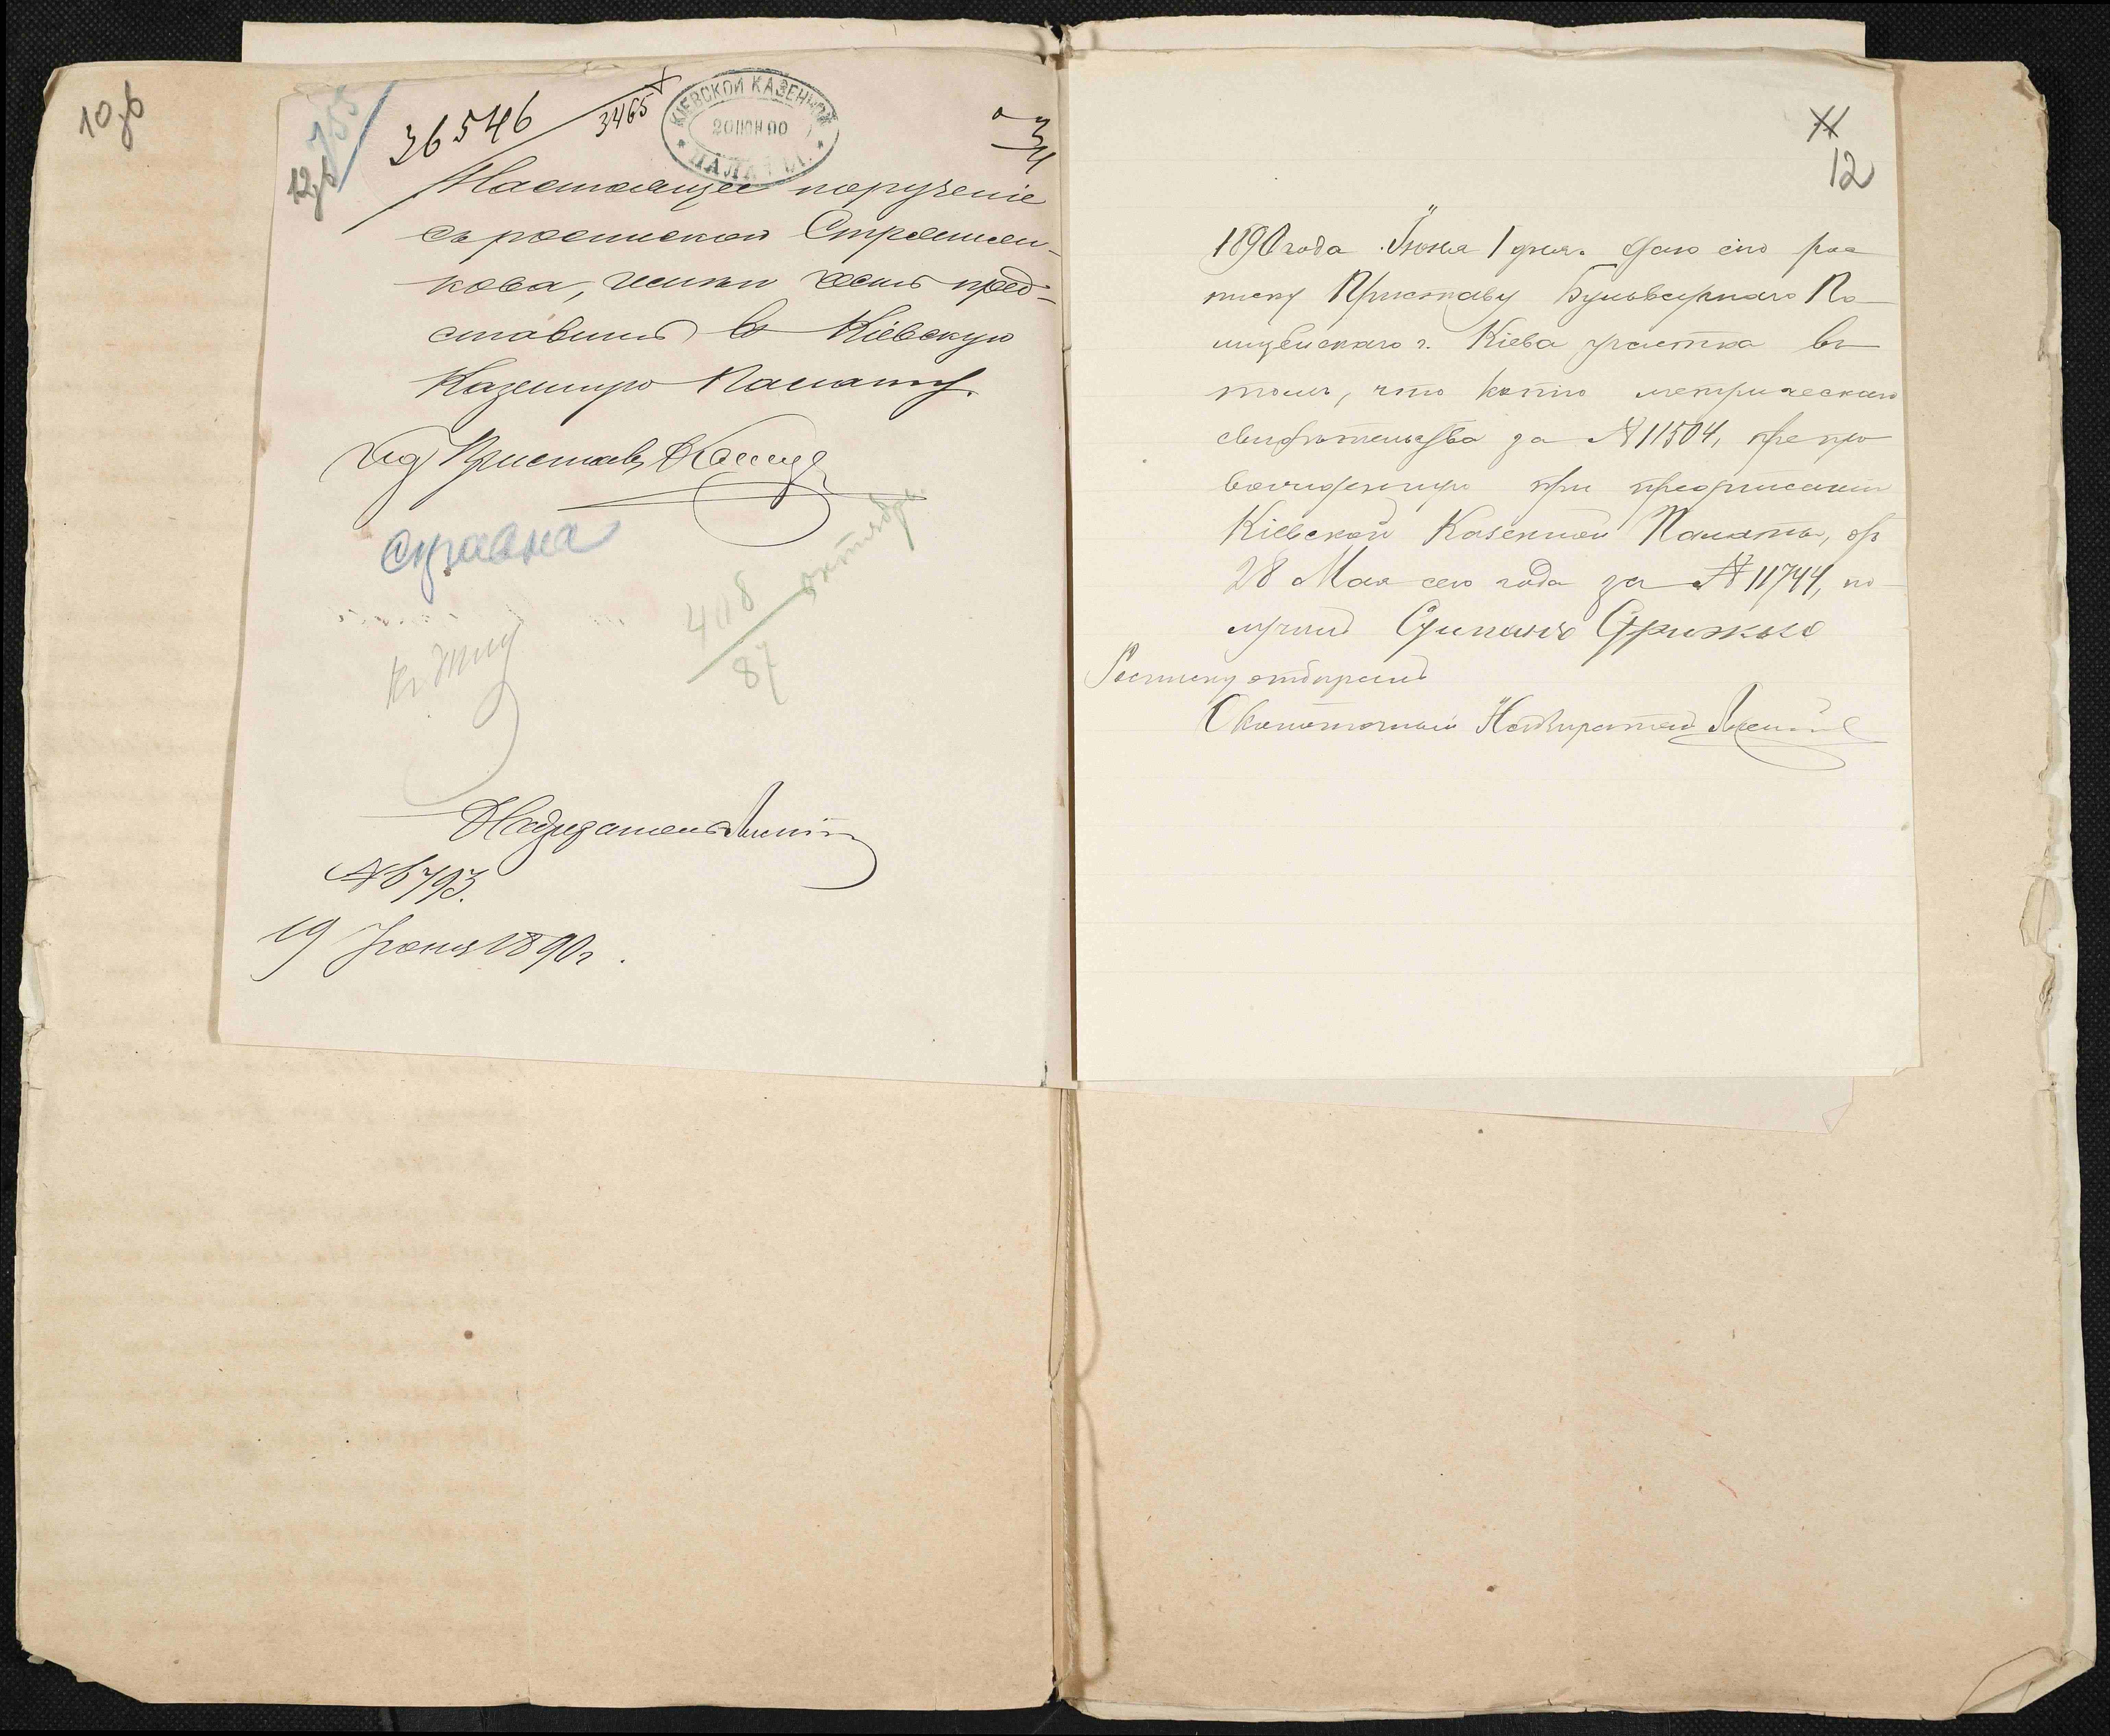 10 зв
12 зв
36546
3465
КІЕВСКОЙ КАЗЕННОЙ
20 ІЮН 90
ПАЛАТЫ
Настоящее порученіе
съ роспиской
кова, имѣю честь пред-
ставить въ Кіевскую
Казенную Палату.
Приставъ
справка
408 октябрь
87
Надзиратель
№ 6793.
19 Іюня 1890 г.
12
1890 года Іюня 1 дня. Даю сію рос
писку Приставу Бульварнаго По-
лицейскаго г. Кіева участка въ
томъ, что копію метрическаго
свидѣтельства за № 11504, препро
вожденную при предписаніи
Кіевской Казенной Палаты, отъ
28 Мая сего года за № 11744, по-
лучилъ
Росписку отобралъ
Околоточный Надзиратель